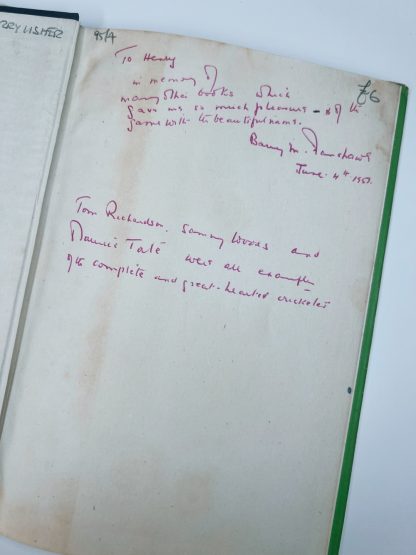 RRY USHER
95/4
£6
To Henry
in memory of
many other books which
gave me so much pleasure - & of the
game with the beautiful name.
Barry M.
June 4th 195
Tom Richardson, Sammy Woods and
Maurice Tate were all examples
of the complete and great-hearted cricketer